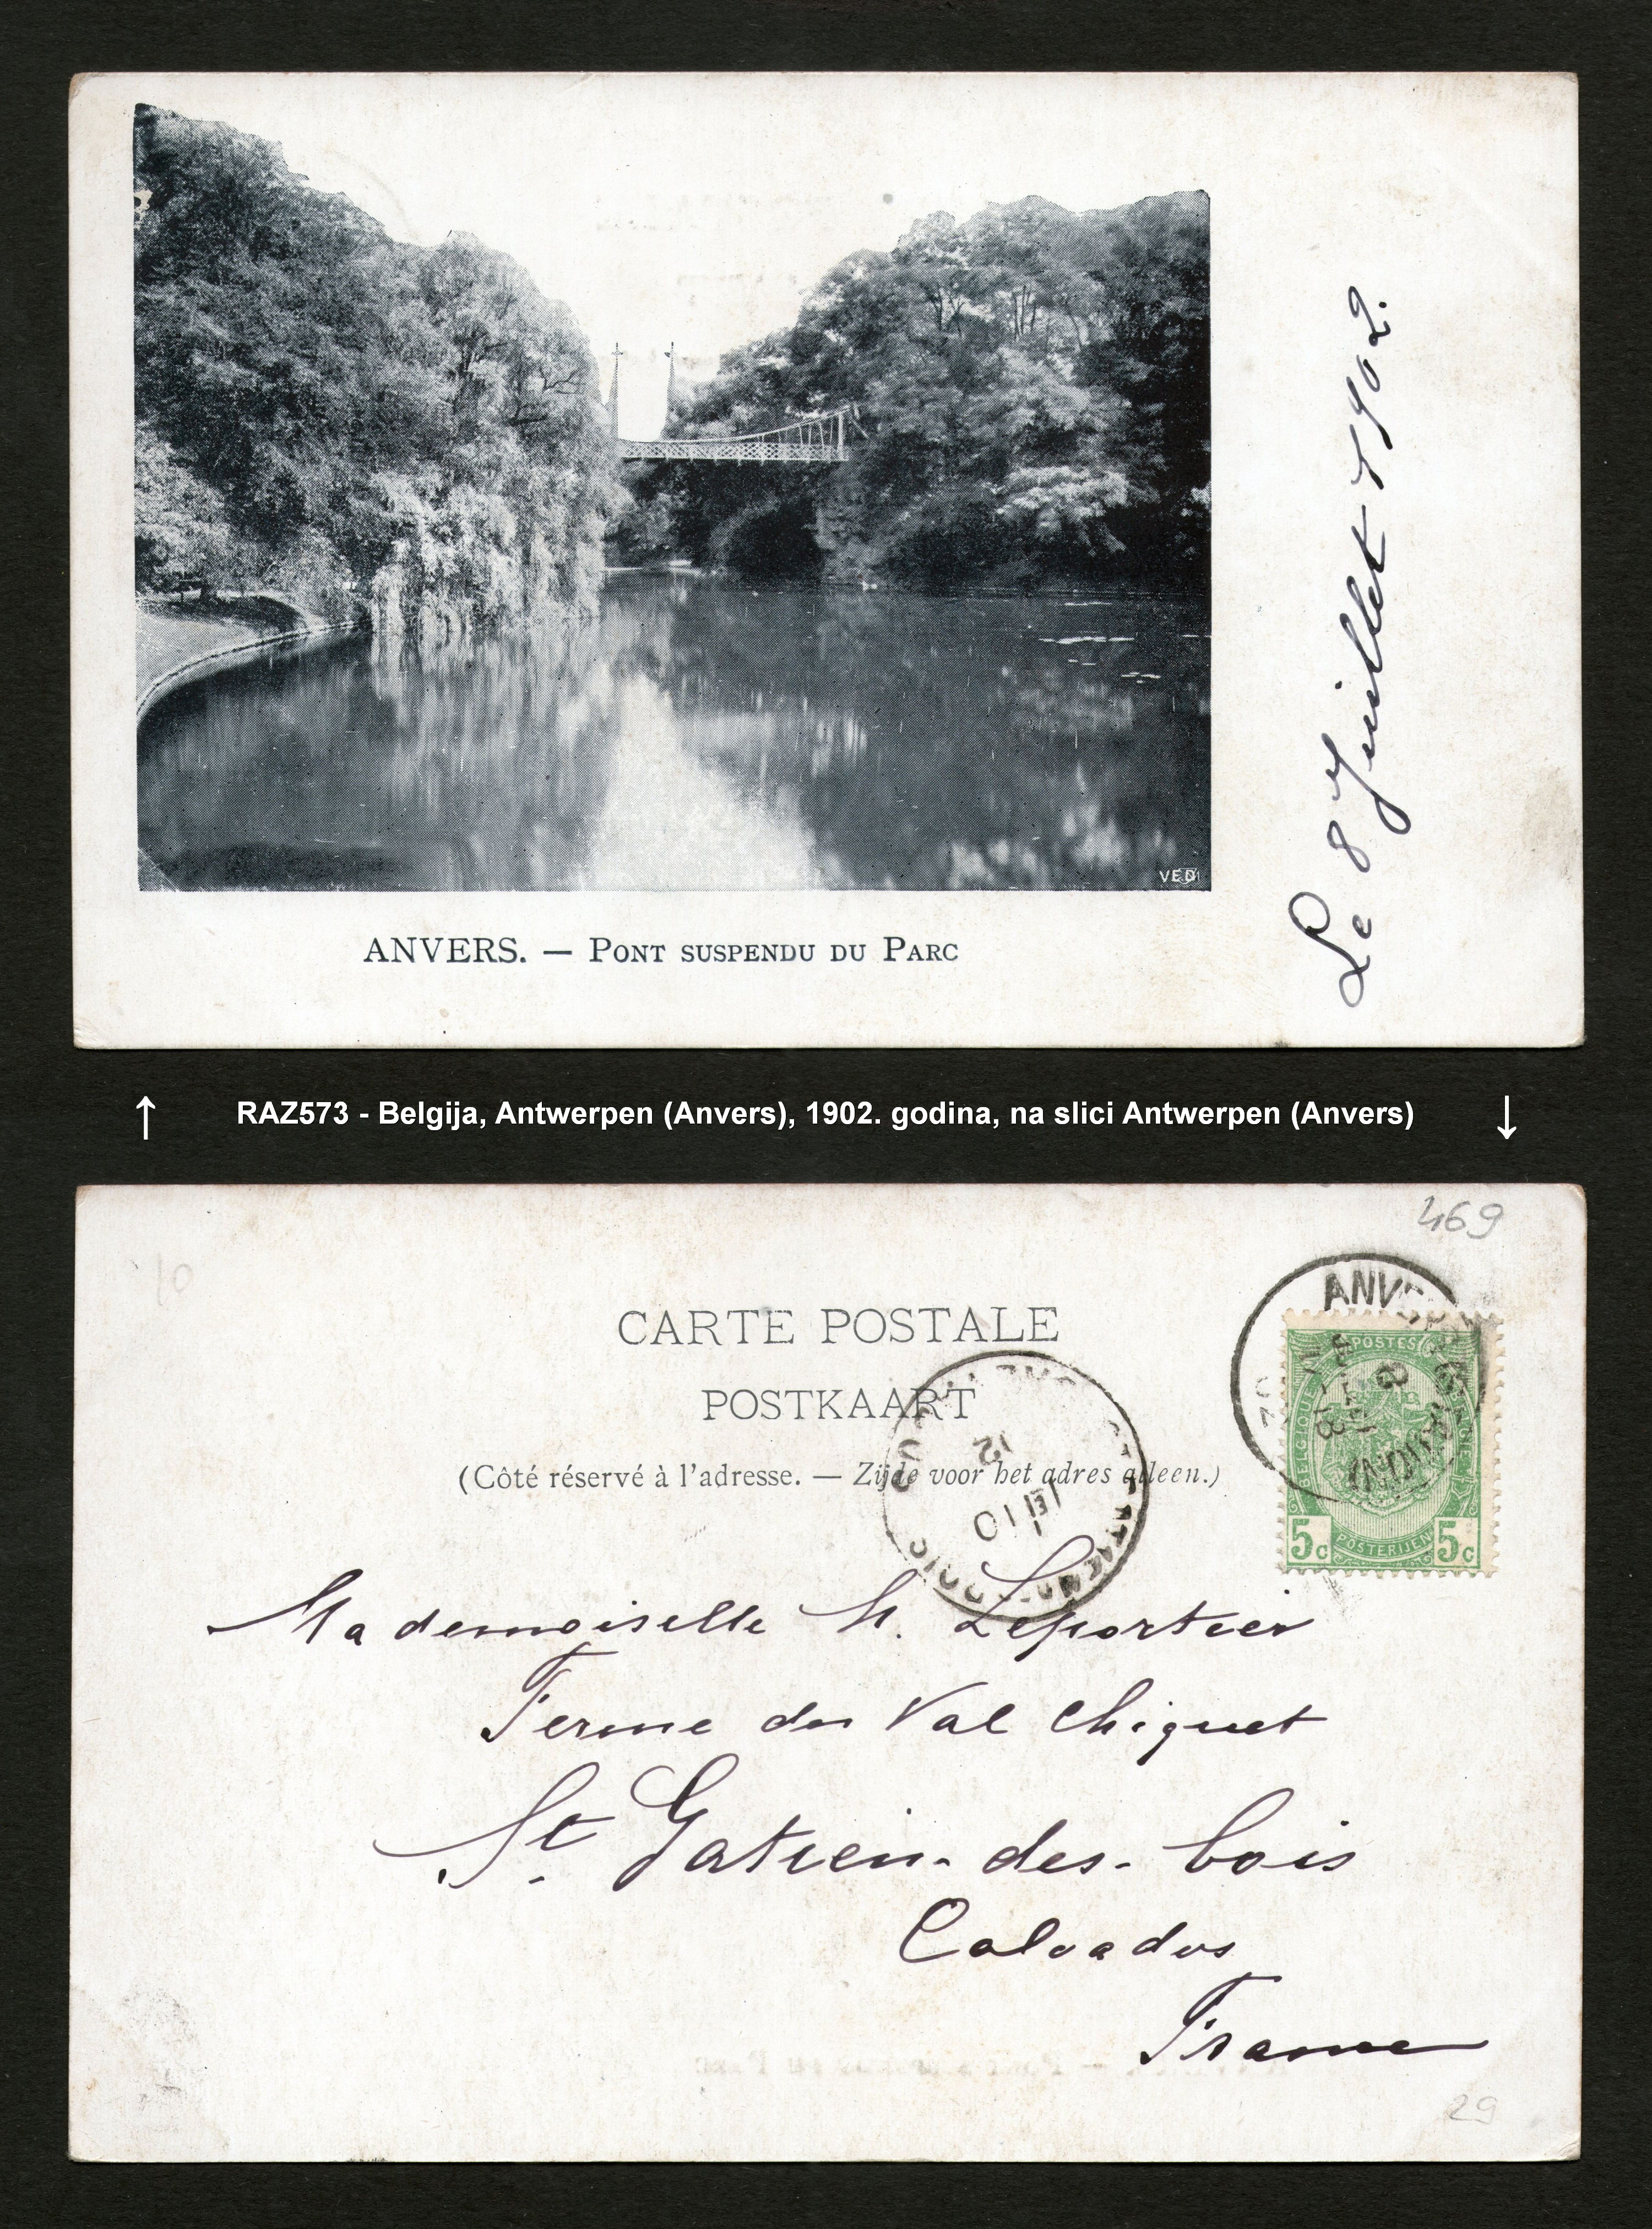 VED
ANVERS. — PONT SUSPENDU DU PARC
Le 8 Juillet 1902.
↑ RAZ573 - Belgija, Antwerpen (Anvers), 1902. godina, na slici Antwerpen (Anvers) ↓
469
10
CARTE POSTALE
POSTKAART
(Côté réservé à l'adresse. — Zijde voor het adres alleen.)
ANVERS
8
POSTES
BELGIQUE
BELGIE
5c POSTERIJEN 5c
12
10
Mademoiselle M. Leportier
Ferme du Val Chiquet
St Gatien-des-bois
Calvados
France
29